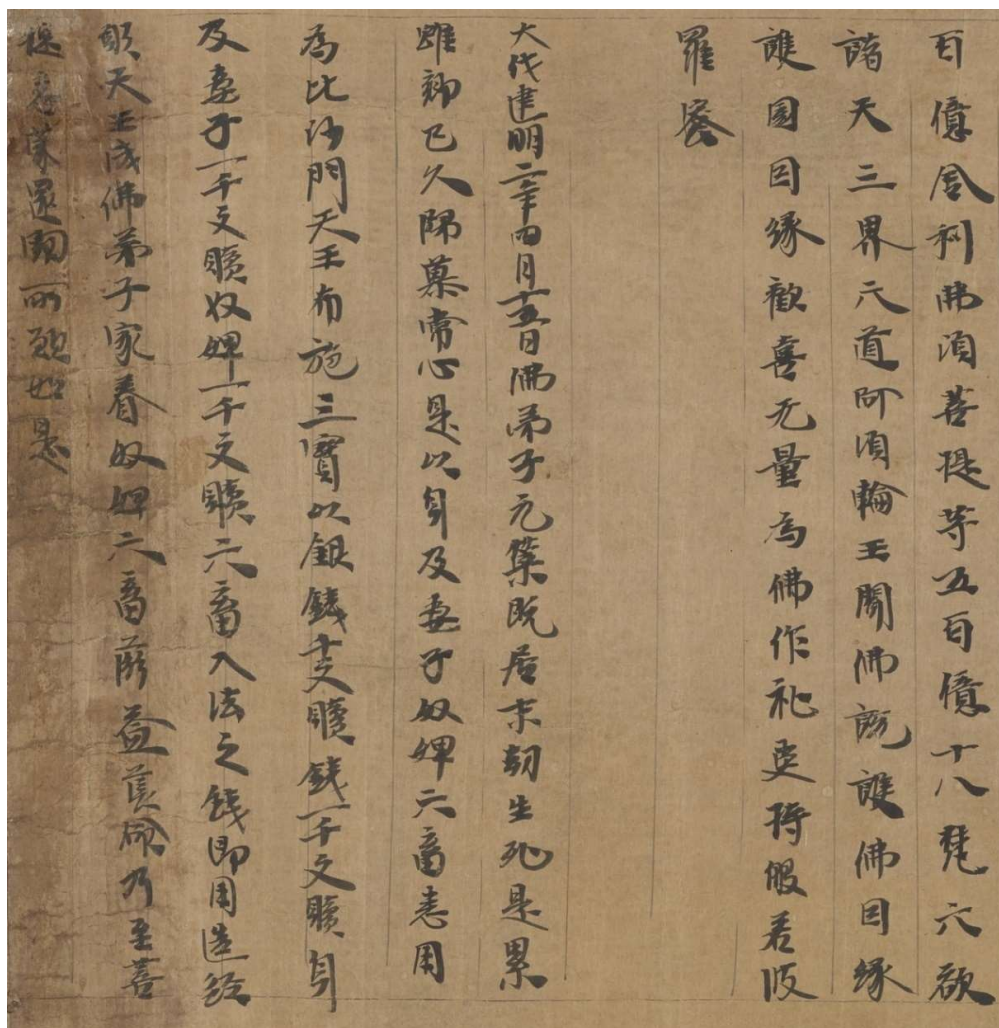 百億舍利弗須菩提等五百億十八梵六欲
諸天三界六道阿須輪王聞佛說護佛因緣
護國因緣歡喜无量為佛作礼受持般若波
羅蜜
大代建明二年四月十五日佛弟子元榮既居末劫生死是累
離鄉已久歸慕常心是以身及妻子奴婢六畜悉用
為比沙門天王布施三寶以銀錢千文贖錢一千文贖身
及妻子一千文贖奴婢一千文贖六畜入法之錢即用造經
願天王成佛弟子家眷奴婢六畜滋益護命乃至菩
提悉蒙還闕所願如是